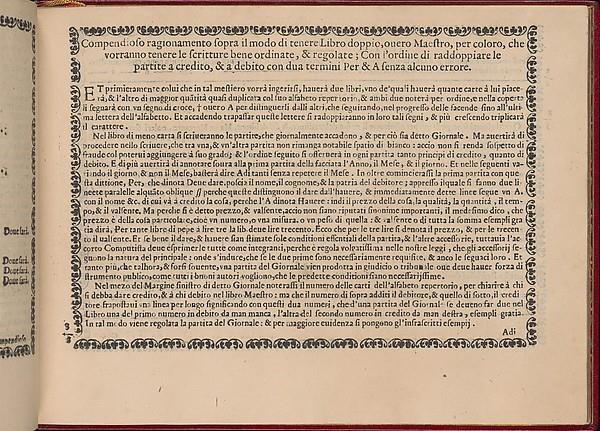 Compendioso ragionamento sopra il modo di tenere Libro doppio, ouero Maestro, per coloro, che
vorranno tenere le scritture bene ordinate, & regolate; Con l'ordine di raddoppiare le
partite a credito, & a debito con due termini Per & A senza alcuno errore.
ET primieramente colui che in tal mestiero vorrà ingerirsi, hauerà due libri, vno de'quali hauerà quante carte à lui piace-
rà, & l'altro di maggior quãtità quasi duplicata col suo alfabeto repertorio, & ambi due noterà per ordine, e nella coperta
li segnarà con vn segno di croce, † ouero A per distinguerli dalli altri, che seguitando, nel progresso delle facende sino all'ulti-
ma lettera dell'alfabetto. Et accadendo trapassar queste lettere si raddoparanno in loro tali segni, & più crescendo triplicarà
il carattere.
Nel libro di meno carta si scriueranno le partite, che giornalmente accadono, & per ciò sia detto Giornale. Ma auertirà di
procedere nello scriuere, che tra vna, & vn'altra partita non rimanga notabile spatio di bianco: accio non si renda sospetto di
fraude col poterui aggiungere à suo grado; & l'ordine seguito si osseruerà in ogni partita tanto principi di credito, quanto di
debito. E di più auertirà di annotare soura alla prima partita della facciata l'Anno, il Mese, & il giorno. Et nelle seguenti va-
ri indo il giorno, & non il Mese, basterà dire Adi tanti senza repetere il Mese. In oltre comincierassi la prima partita con que-
sta dittione, Per, che dinota Deue dare. posciail nome, il cognome, & la patria del debitore; appresso ilquale si fanno due li
neete paralelle alquãto oblique // perche queste distingono il dare dall'hauere, & immediatamente detre linee segue vn A.
con il nome &c. di cui và à credito la cosa, perche l'A dinota Hauere: indi il prezzo della cosa, la qualità, la quantità, il tem-
po, & il valsente. Ma perche si è detto prezzo, & valsente, accio non siano riputati sinonime importanti, il medesimo dico, che
prezzo è della cosa particolare, cioè vn numero, o vna misura, o vn peso di quella: & valsente o di tutta la somma essempli gra
tia dirà, Per tante libre di pepe à lire tre la lib. deue lire trecento. Ecco che per tre lire si denota il prezzo, & per le trecen-
to il valsente. Et se bene il dare, & hauere sian stimate sole conditioni essentiali della partita, & l'altre accessorie, tuttauia l'ac-
corto Computista deue esprimer le tutte come integranti, perche è regola volgatissima nelle nostre leggi, che gli accessorij se-
guono la natura del principale: onde s'induce, che se le due prime sono necessariamente requisite, & anco le seguaci loro. Et
tanto più, che talhora, & forsi souente, vna partita del Giornale vien prodotta in giudicio o tribunale oue deue hauer forza di
strumento publico, come tutti i buoni autori vogliono, che le predette conditioni siano necessarijssime.
Nel mezo del Margine sinistro di detto Giornale noterassi il numero delle carti dell'alfabeto repertorio, per chiarire à chi
si debba dare credito, & à chi debito nel libro Maestro: ma che il numero di sopra additi il debitore, & quello di sotto, il credi-
tore. frapostaui vna linea per luogo significando con questi dua numeri, che d'una partita del Giornale se deueno far due nel
Libro una del primo numero in debito da man manca, l'altra del secondo numero in credito da man destra, esempli gratia.
In tal modo viene regolata la partita del Giornale: & per maggiore euidenza si pongono gl'infrascritti esempij.
Adi
Deue farsi.
Deue farsi.
Deue farsi.
Deue farsi.